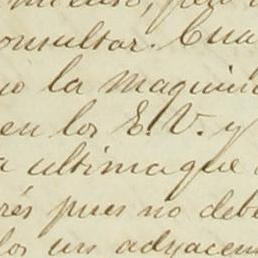 consultar. Cua
no la maquin
en los E. V. y
a ultima que
rés pues no debe
los un adyacen